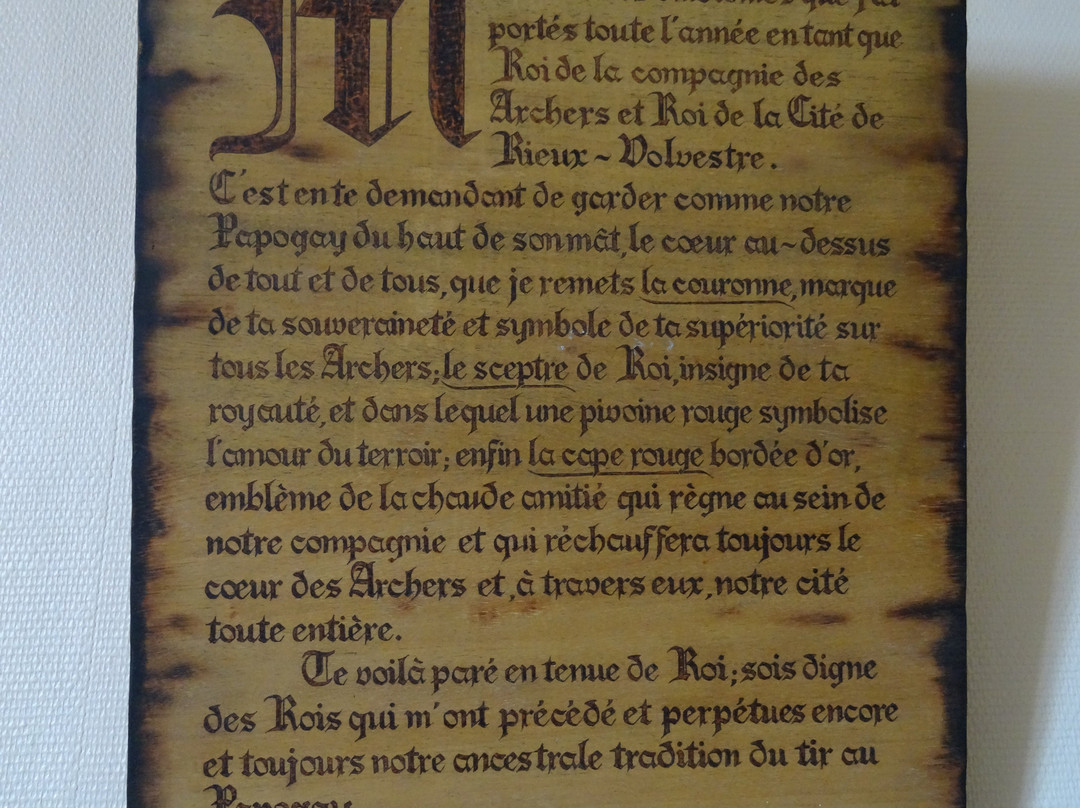 M
que j'ai
portés toute l'année en tant que
Roi de la compagnie des
Archers et Roi de la Cité de
Rieux ~ Volvestre.
C'est en te demandant de garder comme notre
Papogay du haut de son mât, le cœur au~dessus
de tout et de tous, que je remets la couronne, marque
de ta souveraineté et symbole de ta supériorité sur
tous les Archers; le sceptre de Roi, insigne de ta
royauté, et dans lequel une pivoine rouge symbolise
l'amour du terroir; enfin la cape rouge bordée d'or,
emblème de la chaude amitié qui règne au sein de
notre compagnie et qui réchauffera toujours le
cœur des Archers et, à travers eux, notre cité
toute entière.
Te voilà paré en tenue de Roi; sois digne
des Rois qui m'ont précédé et perpétues encore
et toujours notre ancestrale tradition du tir au
Papogay.